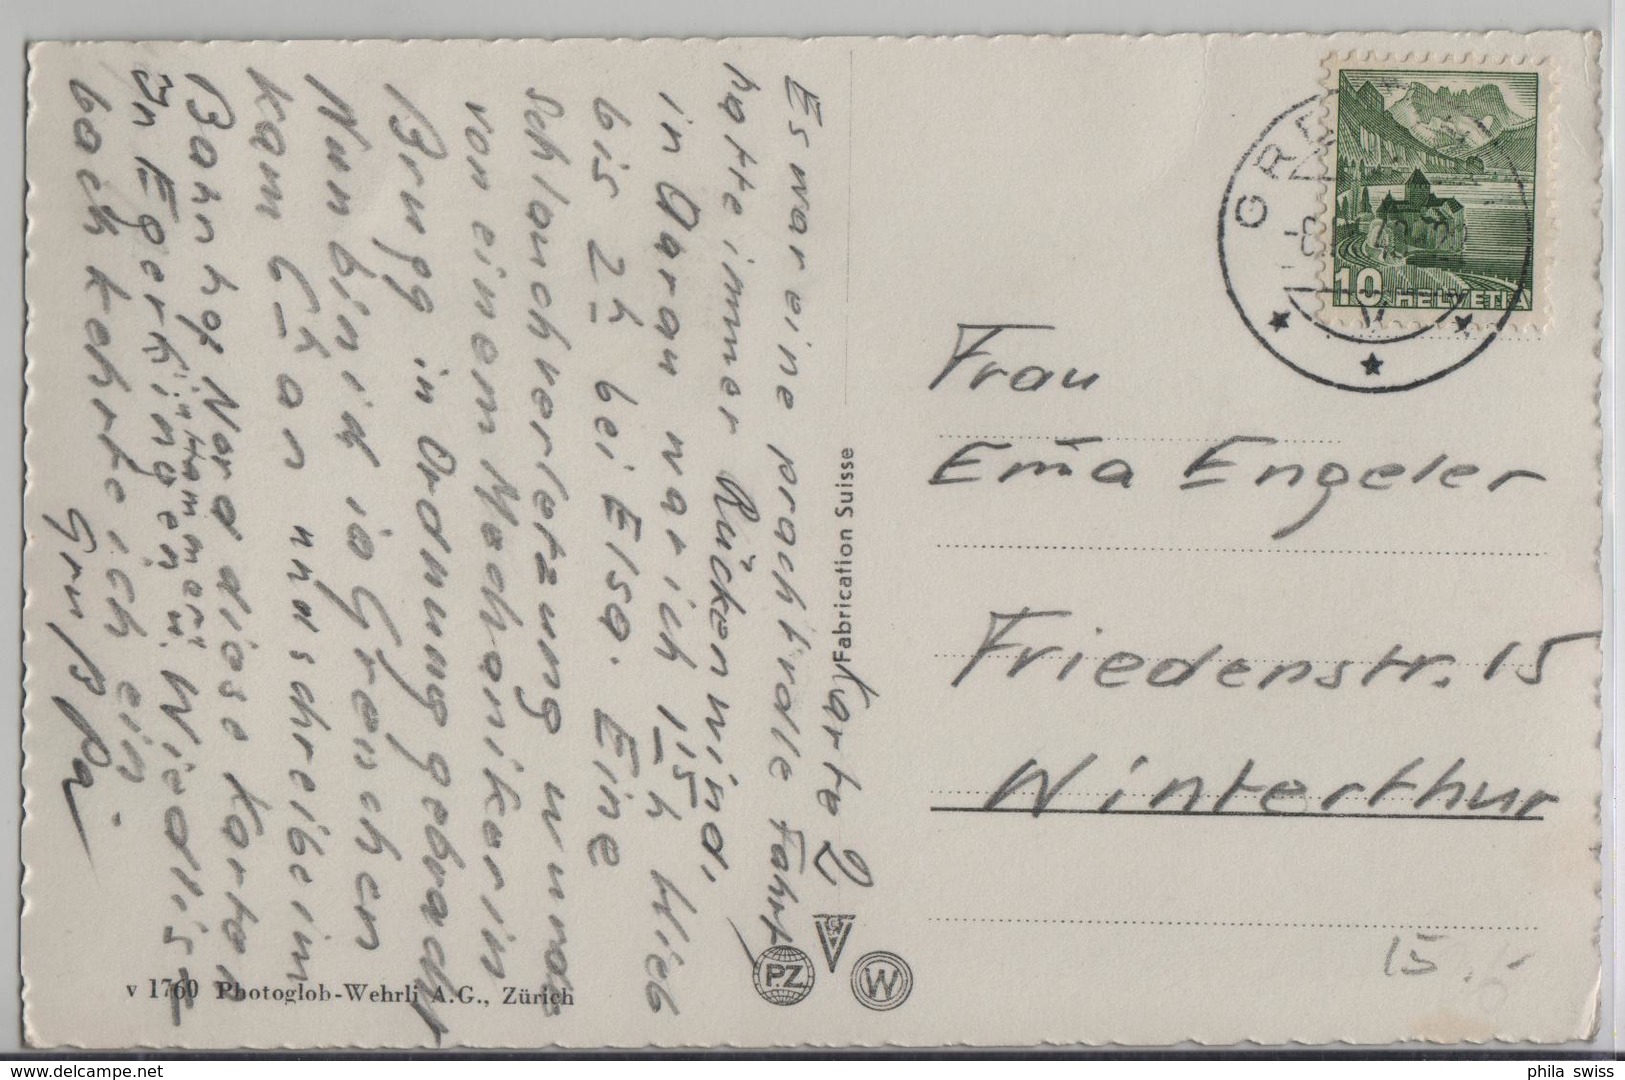 Karte 2
Es war eine prachtvolle Fahrt
hatte immer Rückenwind,
in Aarau war ich 1 15 h blieb
bis 2 h bei Elsa. Eine
Schlauchverletzung wurde
von einem Mechaniker in
Brugg in Ordnung gebracht
Nun bin ich in Grenchen
kam 6 h an und schreibe im
Bahnhof Nord diese Karte
In Egerkingen u. Wiedlis-
bach kehrte ich ein
Gruß Pa.
Fabrication Suisse
v 1760 Photoglob-Wehrli A.G., Zürich
P.Z
W
10 HELVETIA
Frau
Em̄a Engeler
Friedenstr. 15
Winterthur
15.-
phila swiss
www.delcampe.net